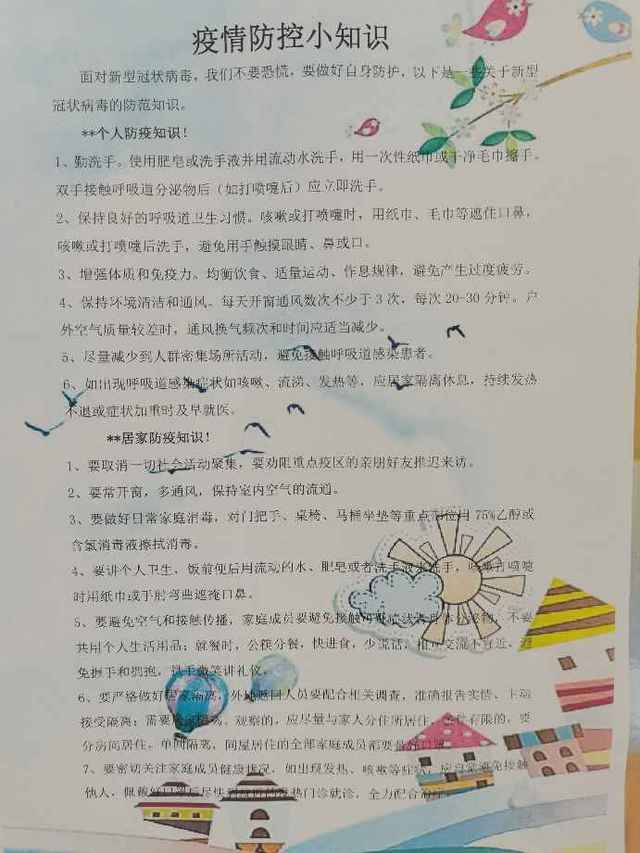 疫情防控小知识
面对新型冠状病毒，我们不要恐慌，要做好自身防护，以下是一些关于新型
冠状病毒的防范知识。
**个人防疫知识！
1、勤洗手。使用肥皂或洗手液并用流动水洗手，用一次性纸巾或干净毛巾擦手。
双手接触呼吸道分泌物后（如打喷嚏后）应立即洗手。
2、保持良好的呼吸道卫生习惯。咳嗽或打喷嚏时，用纸巾、毛巾等遮住口鼻，
咳嗽或打喷嚏后洗手，避免用手触摸眼睛、鼻或口。
3、增强体质和免疫力。均衡饮食、适量运动、作息规律，避免产生过度疲劳。
4、保持环境清洁和通风。每天开窗通风数次不少于3次，每次20-30分钟。户
外空气质量较差时，通风换气频次和时间应适当减少。
5、尽量减少到人群密集场所活动，避免接触呼吸道感染患者。
6、如出现呼吸道感染症状如咳嗽、流涕、发热等，应居家隔离休息，持续发热
不退或症状加重时及早就医。
**居家防疫知识！
1、要取消一切社会活动聚集，要劝阻重点疫区的亲朋好友推迟来访。
2、要常开窗，多通风，保持室内空气的流通。
3、要做好日常家庭消毒，对门把手、桌椅、马桶坐垫等重点部位用75%乙醇或
含氯消毒液擦拭消毒。
4、要讲个人卫生、饭前便后用流动的水、肥皂或者洗手液水洗手，咳嗽打喷嚏
时用纸巾或手肘弯曲遮掩口鼻。
5、要避免空气和接触传播，家庭成员要避免接触可疑症状者身体分泌物，不要
共用个人生活用品；就餐时，公筷分餐，快进食，少说话，相互交流不靠近，避
免握手和拥抱，见手微笑讲礼仪。
6、要严格做好居家隔离，外地返回人员要配合相关调查，准确报告实情、主动
接受隔离；需要居家隔离、观察的，应尽量与家人分住所居住，条件有限的，要
分房间居住，单间隔离，同屋居住的全部家庭成员都要
7、要密切关注家庭成员健康状况，如出现发热、咳嗽等症状，应自觉避免接触
他人，佩戴好口罩后尽快到 热门诊就诊，全力配合治疗。